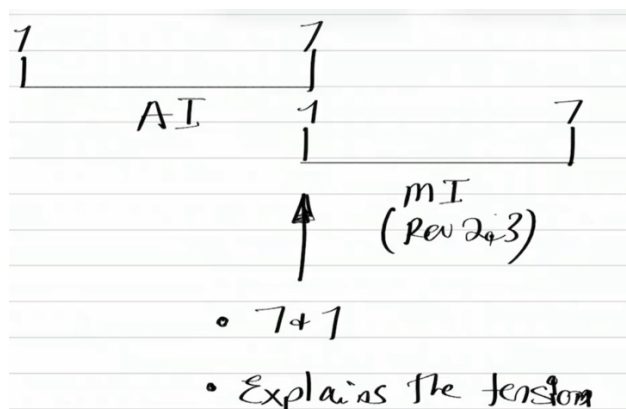 1 7
AI 1 7
MI
(Rev 2,3)
• 7+1
• Explains the tension